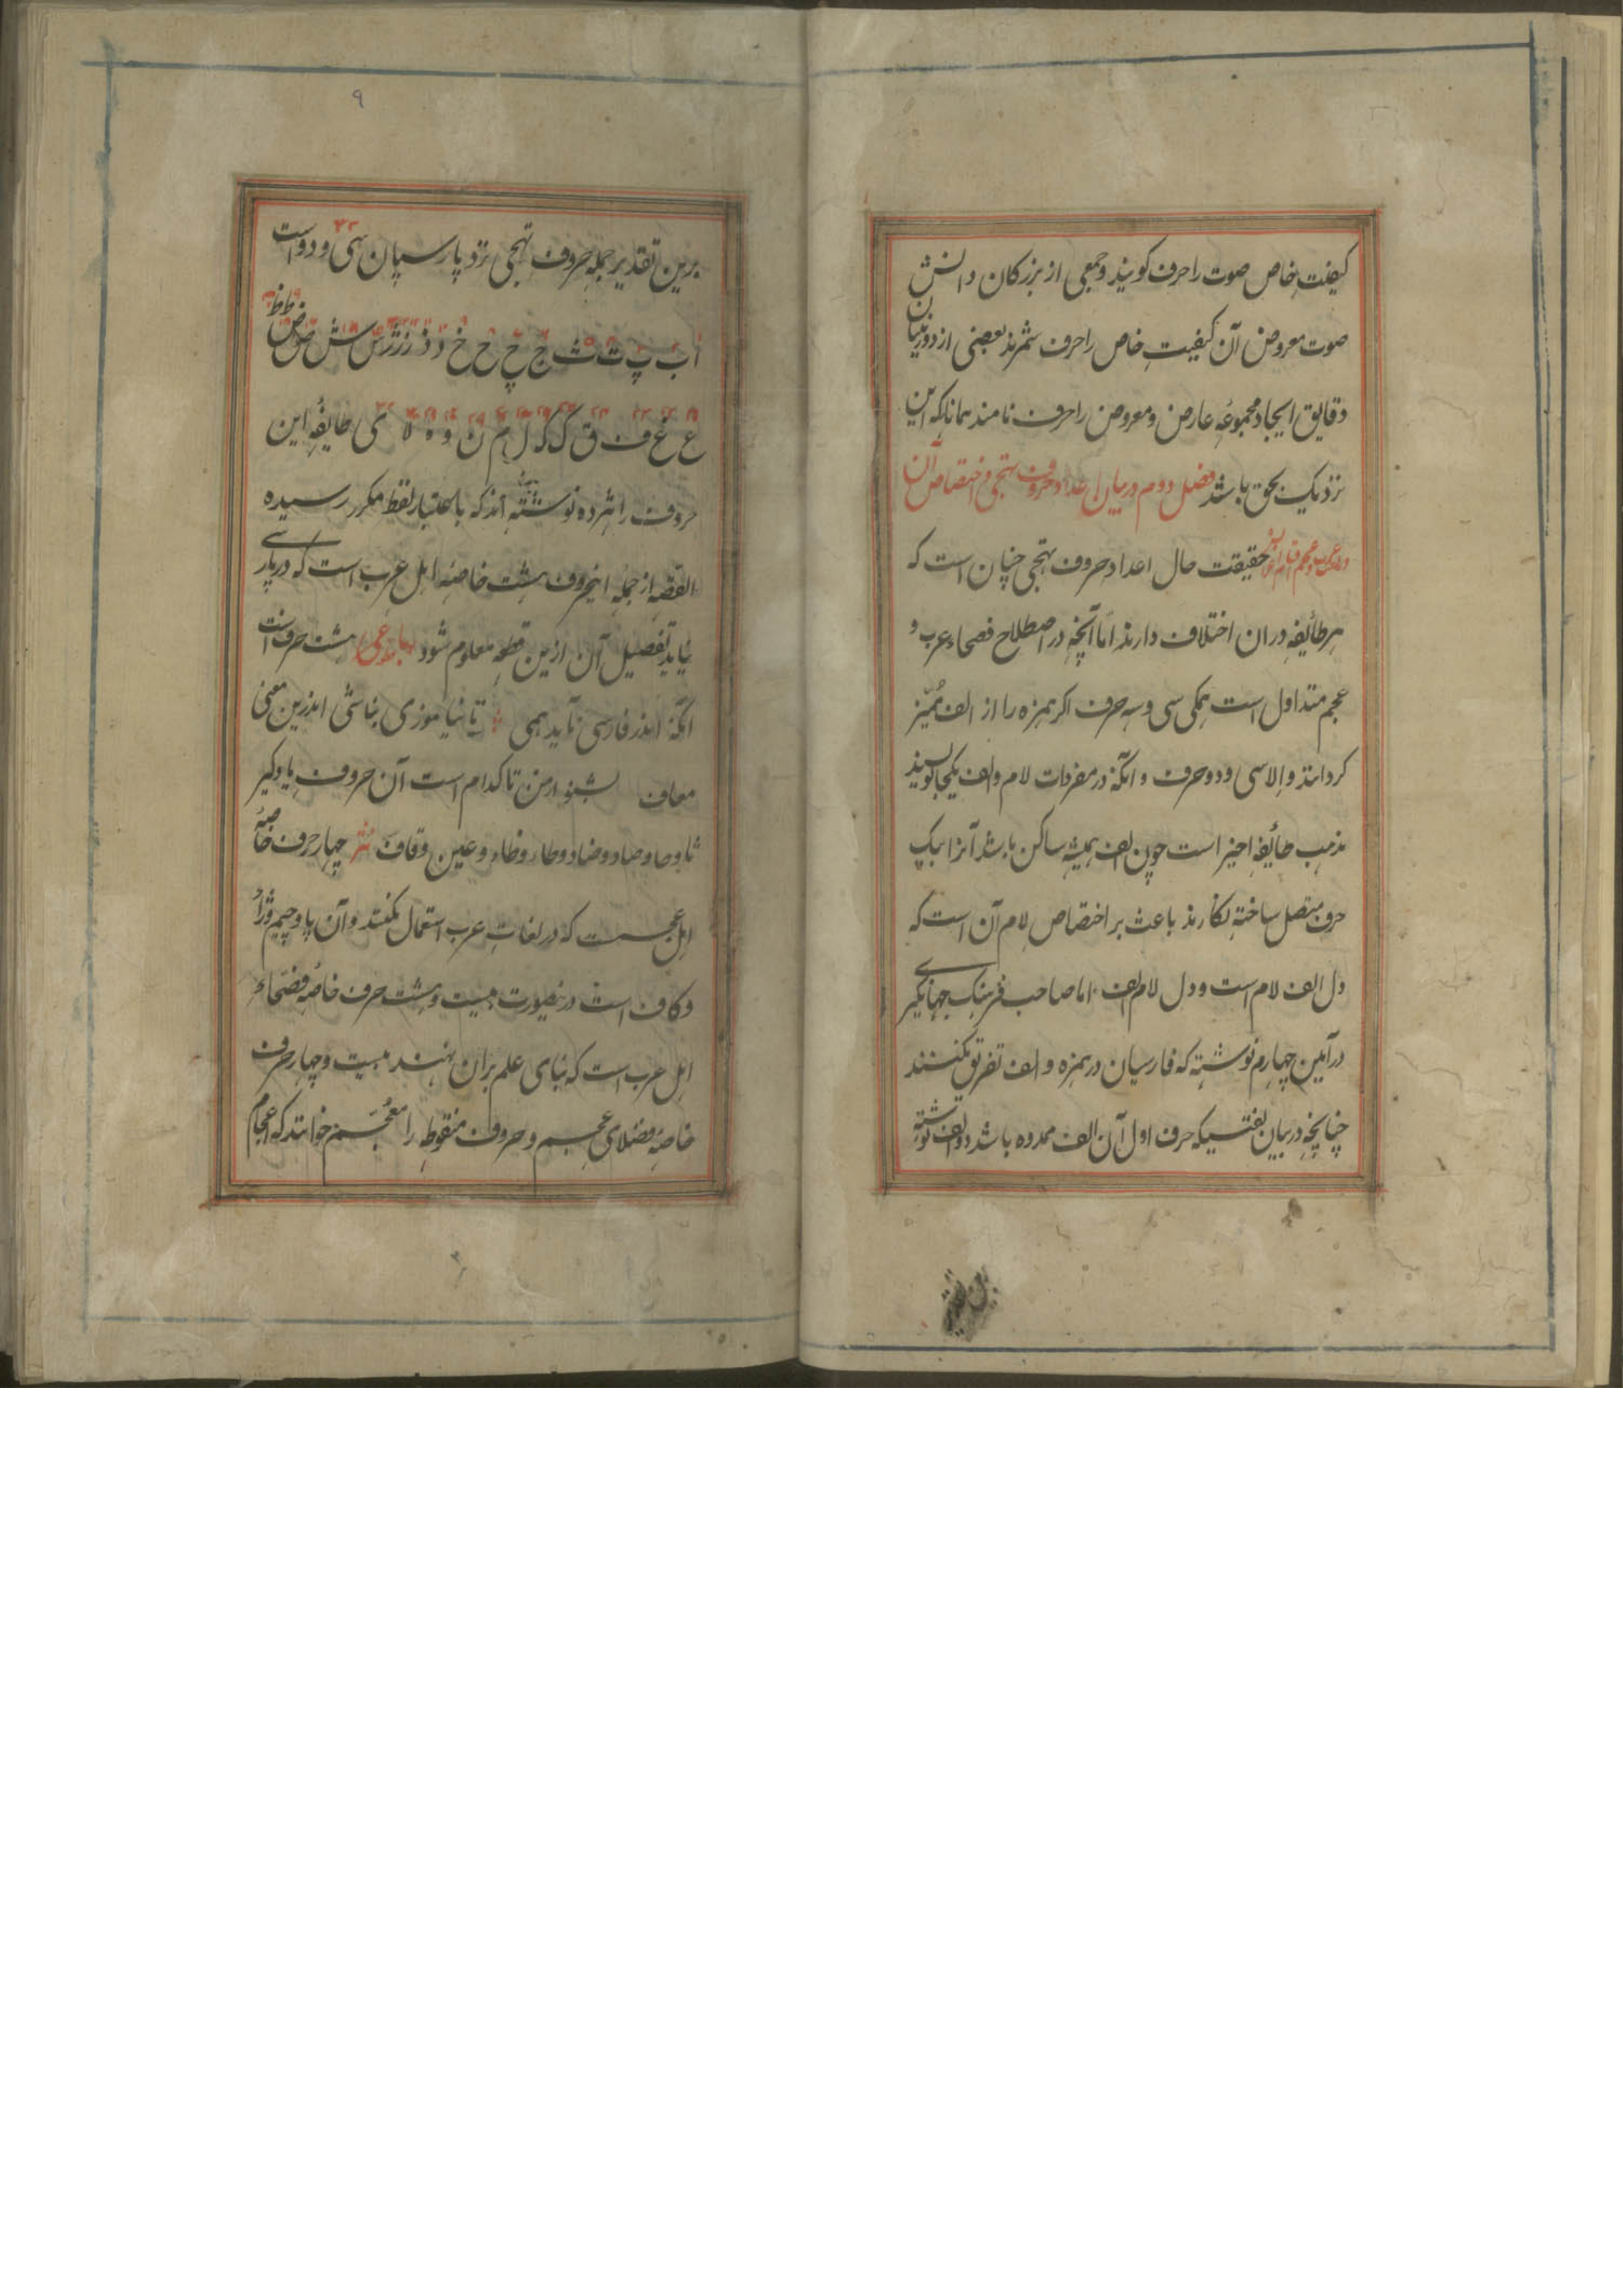 کیفیت خاص صوت را حرف کویند و جمعی از بزرکان دانش
صوت معروض آن کیفیت خاص را حرف شمرند بعضی از دوربینان
دقایق ایجاد مجموعه عارض و معروض را حرف نامند همانا که این
نزدیک بحق باشد فصل دوم در بیان اعداد حروف تهجی و اختصاص آن
حقیقت حال اعداد حروف تهجی چنان است که
هر طائفه در ان اختلاف دارند اما آنچه در اصطلاح فصحاء عرب و
عجم متداول است همکی سی و سه حرف اکر همزه را از الف ممیز
کردانند و الا سی و دو حرف و انکه در مفردات لام و الف یکجا نویسند
مذهب طائفه اخیر است چون الف همیشه ساکن باشد آنرا بیک
حرف متصل ساخته نکارند باعث بر اختصاص لام آن است که
دل الف لام است و دل لام الف اما صاحب فرهنک جهانکیری
در آیین چهارم نوشته که فارسیان در همزه و الف تفرق نکنند
چنانچه در بیان لغتیکه حرف اول آن الف ممدوده باشد دو الف نوشته
۹
برین تقدیر جمله حروف تهجی نزد پارسیان سی و دو است
ا ب پ ت ث ج چ ح خ د ذ ر ز ژ س ش ص ض ط ظ
ع غ ف ق ک ک ل م ن و ه لا ی طایفه این
حروف را شمرده نوشته اند که باعتبار لفظ مکرر رسیده
القصه از جمله اینحروف هشت خاصه اهل عرب است که در پارسی
نیاید تفصیل آن ازین قطعه معلوم شود هشت حرف است
انکه اندر فارسی ناید همی تا نیاموزی نباشی اندرین معنی
معاف بشنو از من تا کدام است آن حروف یاد کیر
ثا و حا و صاد و ضاد و طا و ظا و عین و قاف نثر چهار حرف خاصه
اهل عجمست که در لغات عرب استعمال نکنند و آن پا و چیم و ژا
و کاف است درینصورت بیست و هشت حرف خاصه فصحاء
اهل عرب است که بنای علم بران نهند بیست و چهار حرف
خاصه فضلای عجم و حروف منقوطه را معجم خوانند که اعجام